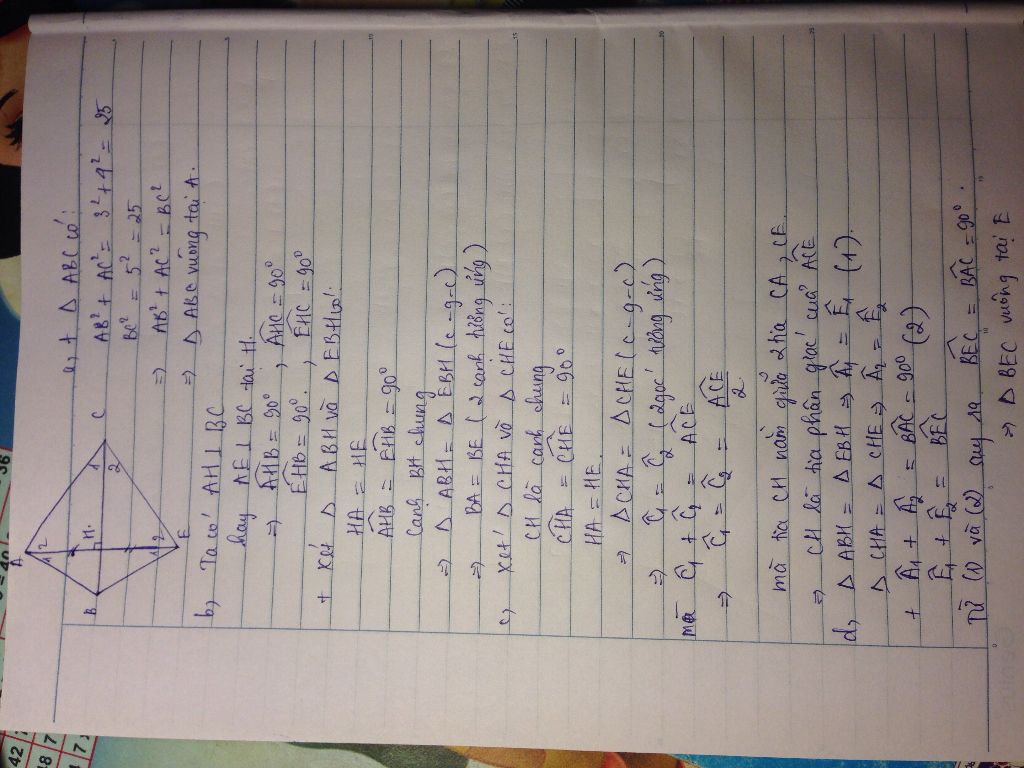 A
B
C
E
H
1
2
1
2
1
2
1
2
a, + Δ ABC có:
AB² + AC² = 3² + 4² = 25
BC² = 5² = 25
=> AB² + AC² = BC²
=> Δ ABC vuông tại A.
b, Ta có AH ⊥ BC
hay AE ⊥ BC tại H.
=> AHB = 90°, AHC = 90°
EHB = 90°, EHC = 90°
+ xét Δ ABH và Δ EBH có:
HA = HE
AHB = EHB = 90°
cạnh BH chung
=> Δ ABH = Δ EBH (c-g-c)
=> BA = BE (2 cạnh tương ứng)
c, xét Δ CHA và Δ CHE có:
CH là cạnh chung
CHA = CHE = 90°
HA = HE.
=> Δ CHA = Δ CHE (c-g-c)
=> C₁ = C₂ (2 góc tương ứng)
mà C₁ + C₂ = ACE
=> C₁ = C₂ = ACE/2
mà tia CH nằm giữa 2 tia CA, CE.
=> CH là tia phân giác của ACE
d, Δ ABH = Δ EBH => A₁ = E₁ (1).
Δ CHA = Δ CHE => A₂ = E₂
+ A₁ + A₂ = BAC = 90° (2)
E₁ + E₂ = BEC
Từ (1) và (2) suy ra BEC = BAC = 90°.
=> Δ BEC vuông tại E